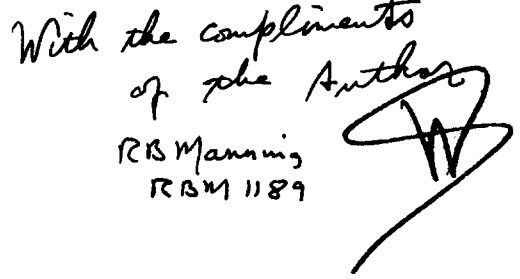 With the compliments
of the Author
RB Manning
RBM 1189